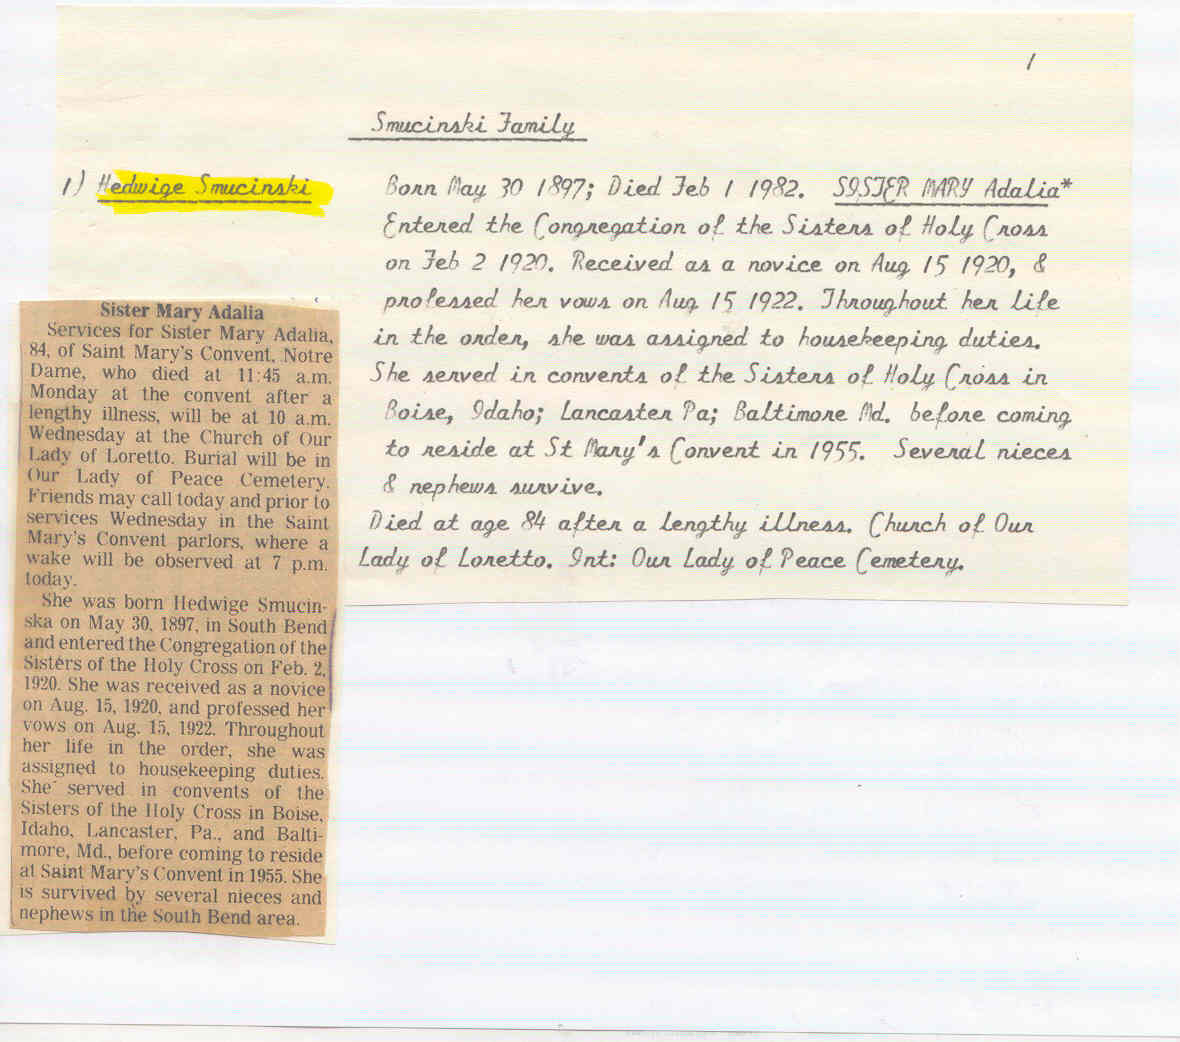 1
Smucinski Family
1) Hedwige Smucinski
Born May 30 1897; Died Feb 1 1982. SISTER MARY Adalia*
Entered the Congregation of the Sisters of Holy Cross
on Feb 2 1920. Received as a novice on Aug 15 1920, &
professed her vows on Aug 15 1922. Throughout her life
in the order, she was assigned to housekeeping duties.
She served in convents of the Sisters of Holy Cross in
Boise, Idaho; Lancaster Pa; Baltimore Md. before coming
to reside at St Mary's Convent in 1955. Several nieces
& nephews survive.
Died at age 84 after a lengthy illness. Church of Our
Lady of Loretto. Int: Our Lady of Peace Cemetery.
Sister Mary Adalia
Services for Sister Mary Adalia,
84, of Saint Mary's Convent, Notre
Dame, who died at 11:45 a.m.
Monday at the convent after a
lengthy illness, will be at 10 a.m.
Wednesday at the Church of Our
Lady of Loretto. Burial will be in
Our Lady of Peace Cemetery.
Friends may call today and prior to
services Wednesday in the Saint
Mary's Convent parlors, where a
wake will be observed at 7 p.m.
today.
She was born Hedwige Smucin-
ska on May 30, 1897, in South Bend
and entered the Congregation of the
Sisters of the Holy Cross on Feb. 2,
1920. She was received as a novice
on Aug. 15, 1920, and professed her
vows on Aug. 15, 1922. Throughout
her life in the order, she was
assigned to housekeeping duties.
She served in convents of the
Sisters of the Holy Cross in Boise,
Idaho, Lancaster, Pa., and Balti-
more, Md., before coming to reside
at Saint Mary's Convent in 1955. She
is survived by several nieces and
nephews in the South Bend area.